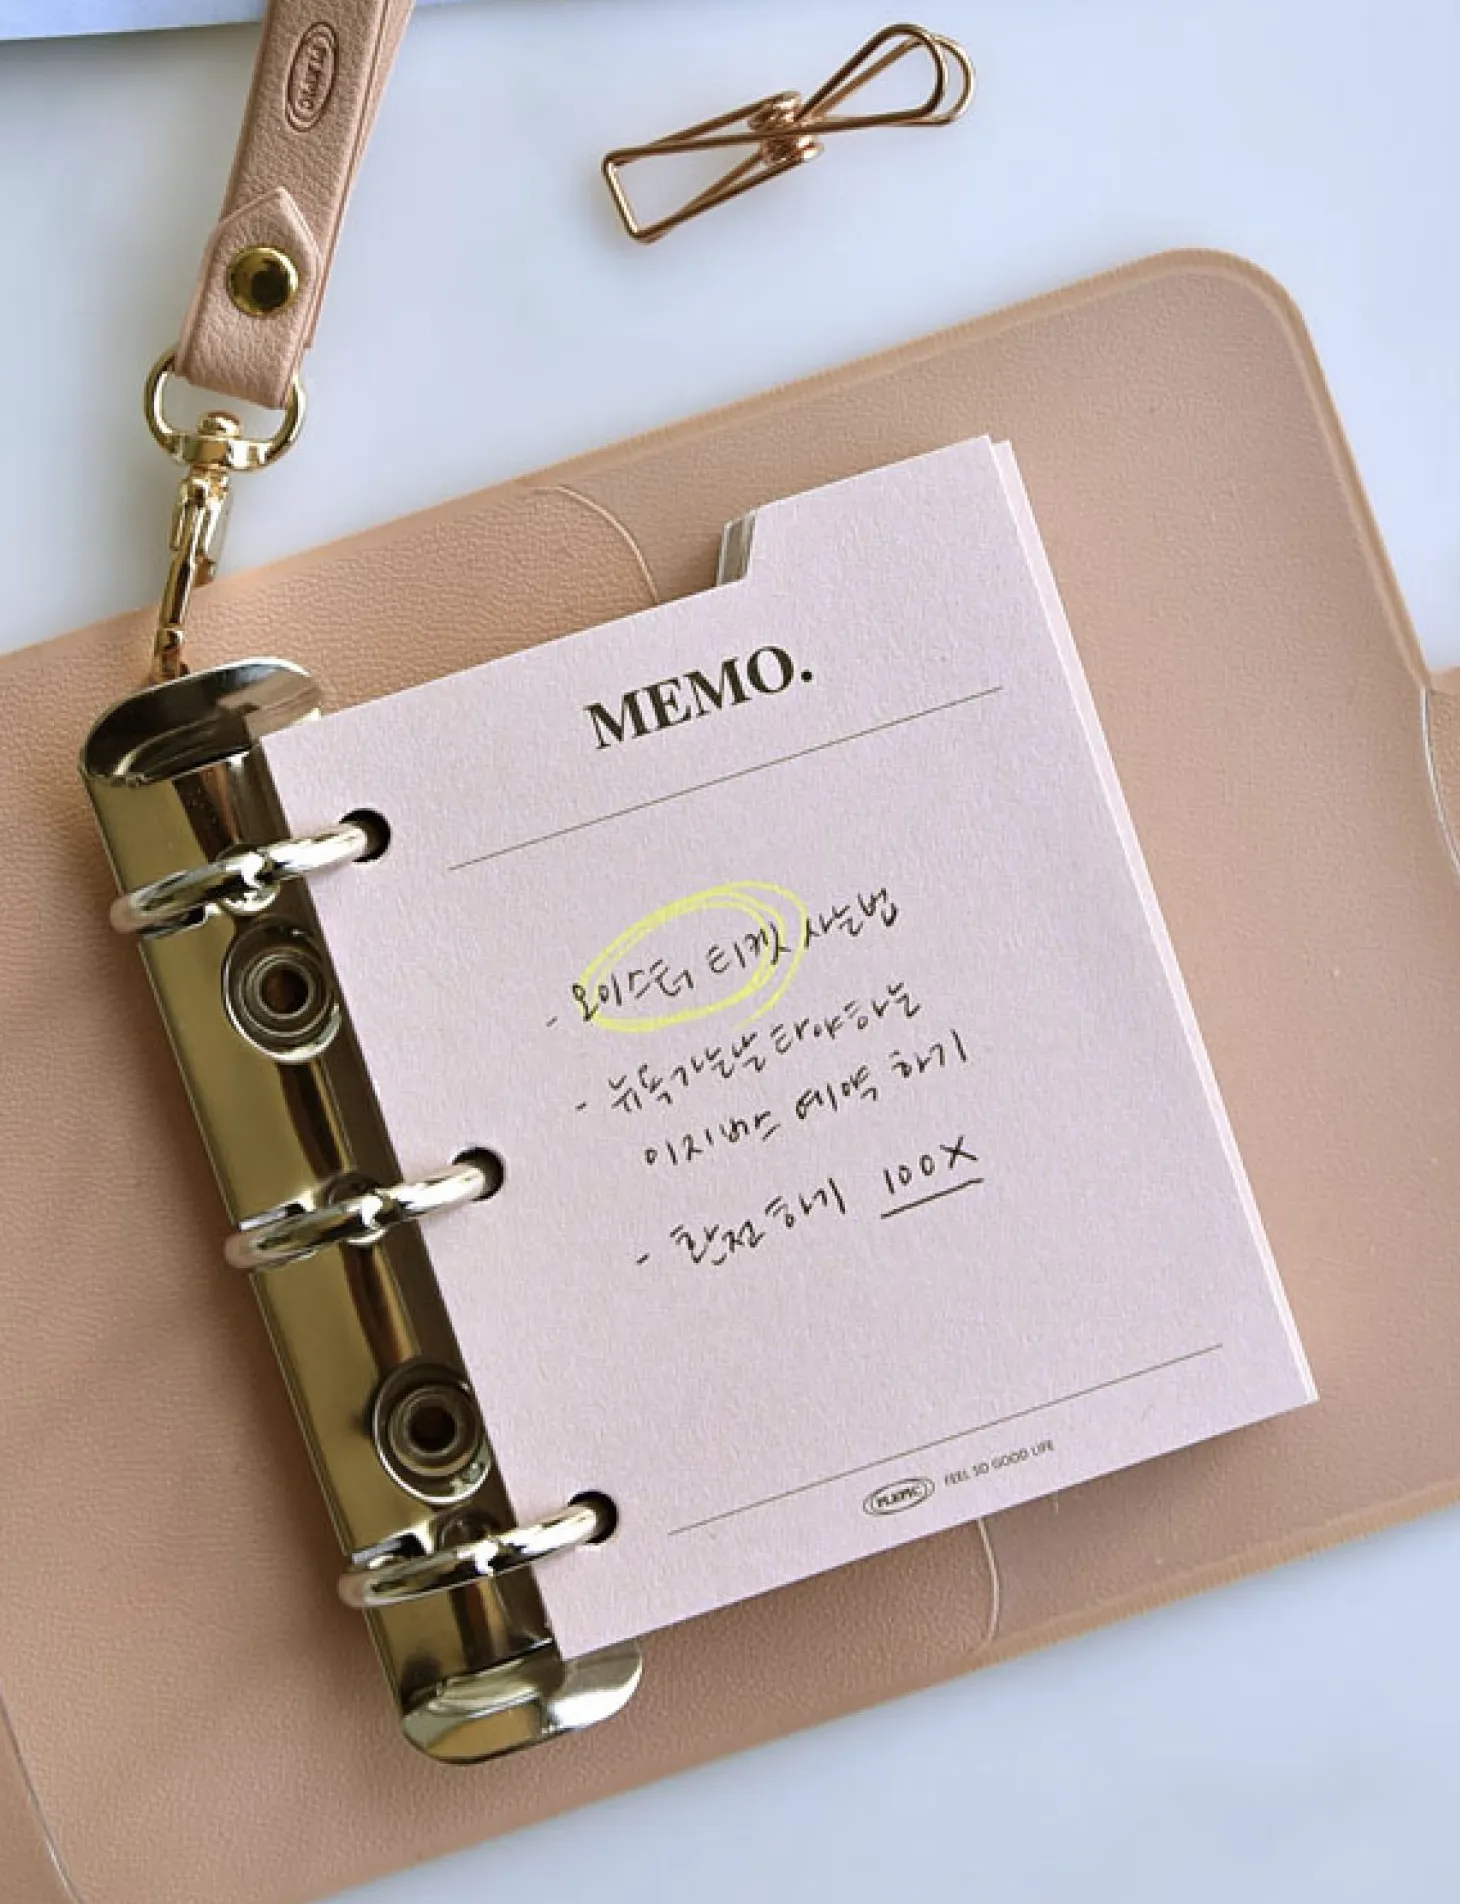 PLEPIC
MEMO.
- 오이스터 티켓 사는법
- 뉴욕가는날 타야하는
이지버스 예약 하기
- 환전하기 100X
PLEPIC FEEL SO GOOD LIFE